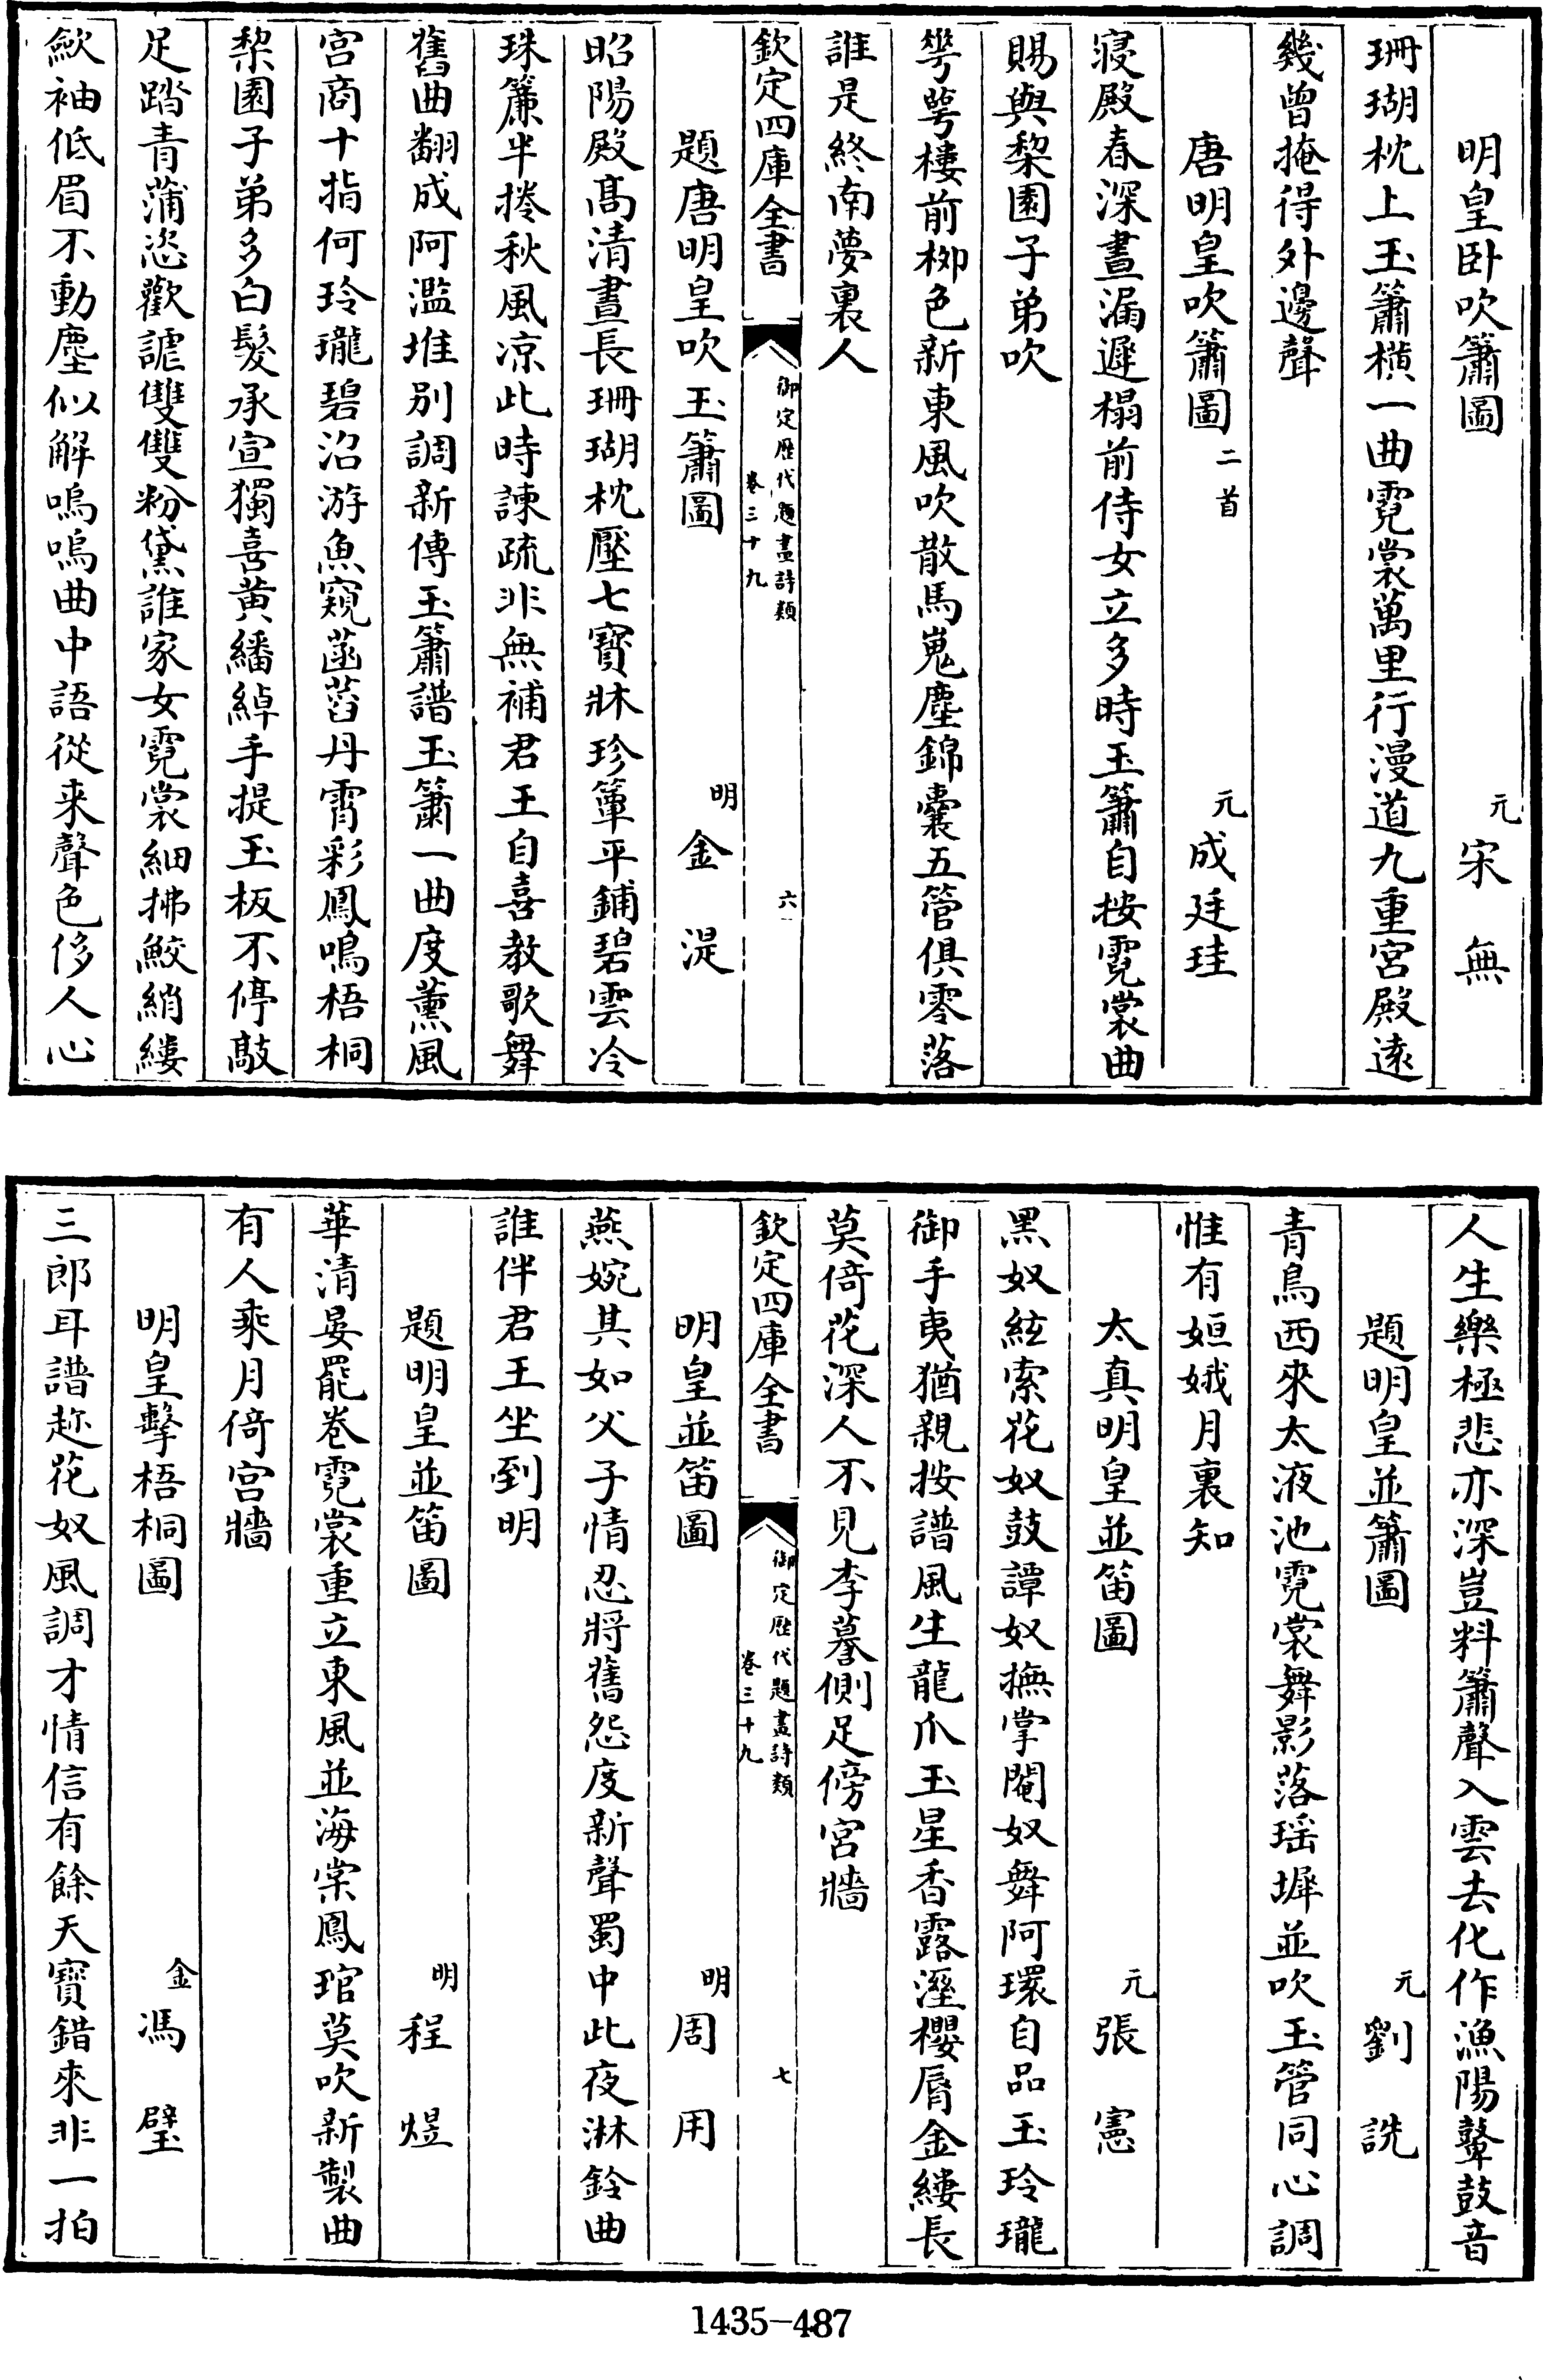 明皇卧吹簫圖　元宋無
珊瑚枕上玉簫橫一曲霓裳萬里行漫道九重宮殿遠
幾曾掩得外邊聲
唐明皇吹簫圖二首　元成廷珪
寢殿春深晝漏遲榻前侍女立多時玉簫自按霓裳曲
賜與棃園子弟吹
華萼樓前栁色新東風吹散馬嵬塵錦囊五管俱零落
誰是終南夢裏人
欽定四庫全書　御定歷代題畫詩類卷三十九　六
題唐明皇吹玉簫圖　明金湜
昭陽殿髙清晝長珊瑚枕壓七寶牀珍簟平鋪碧雲冷
珠簾半捲秋風凉此時諫疏非無補君王自喜教歌舞
舊曲翻成阿濫堆别調新傳玉簫譜玉簫一曲度薰風
宮商十指何玲瓏碧沼游魚窺菡萏丹霄彩鳳鳴梧桐
棃園子弟多白髮承宣獨喜黄繙綽手提玉板不停敲
足踏青蒲恣歡謔雙雙粉黛誰家女霓裳細拂鮫綃縷
歛袖低眉不動塵似解嗚嗚曲中語從来聲色侈人心
人生樂極悲亦深豈料簫聲入雲去化作漁陽鼙鼓音
題明皇並簫圖　元劉詵
青鳥西來太液池霓裳舞影落瑶墀並吹玉管同心調
惟有姮娥月裏知
太真明皇並笛圖　元張憲
黑奴絃索花奴鼓譚奴撫掌閹奴舞阿環自品玉玲瓏
御手夷猶親按譜風生龍爪玉星香露溼櫻脣金縷長
莫倚花深人不見李謩側足傍宮牆
欽定四庫全書　御定歷代題畫詩類卷三十九　七
明皇並笛圖　明周用
燕婉其如父子情忍將舊怨度新聲蜀中此夜淋鈴曲
誰伴君王坐到明
題明皇並笛圖　明程煜
華清宴罷卷霓裳重立東風並海棠鳳琯莫吹新製曲
有人乘月倚宮牆
明皇擊梧桐圖　金馮璧
三郎耳譜趂花奴風調才情信有餘天寶錯來非一拍
1435-487